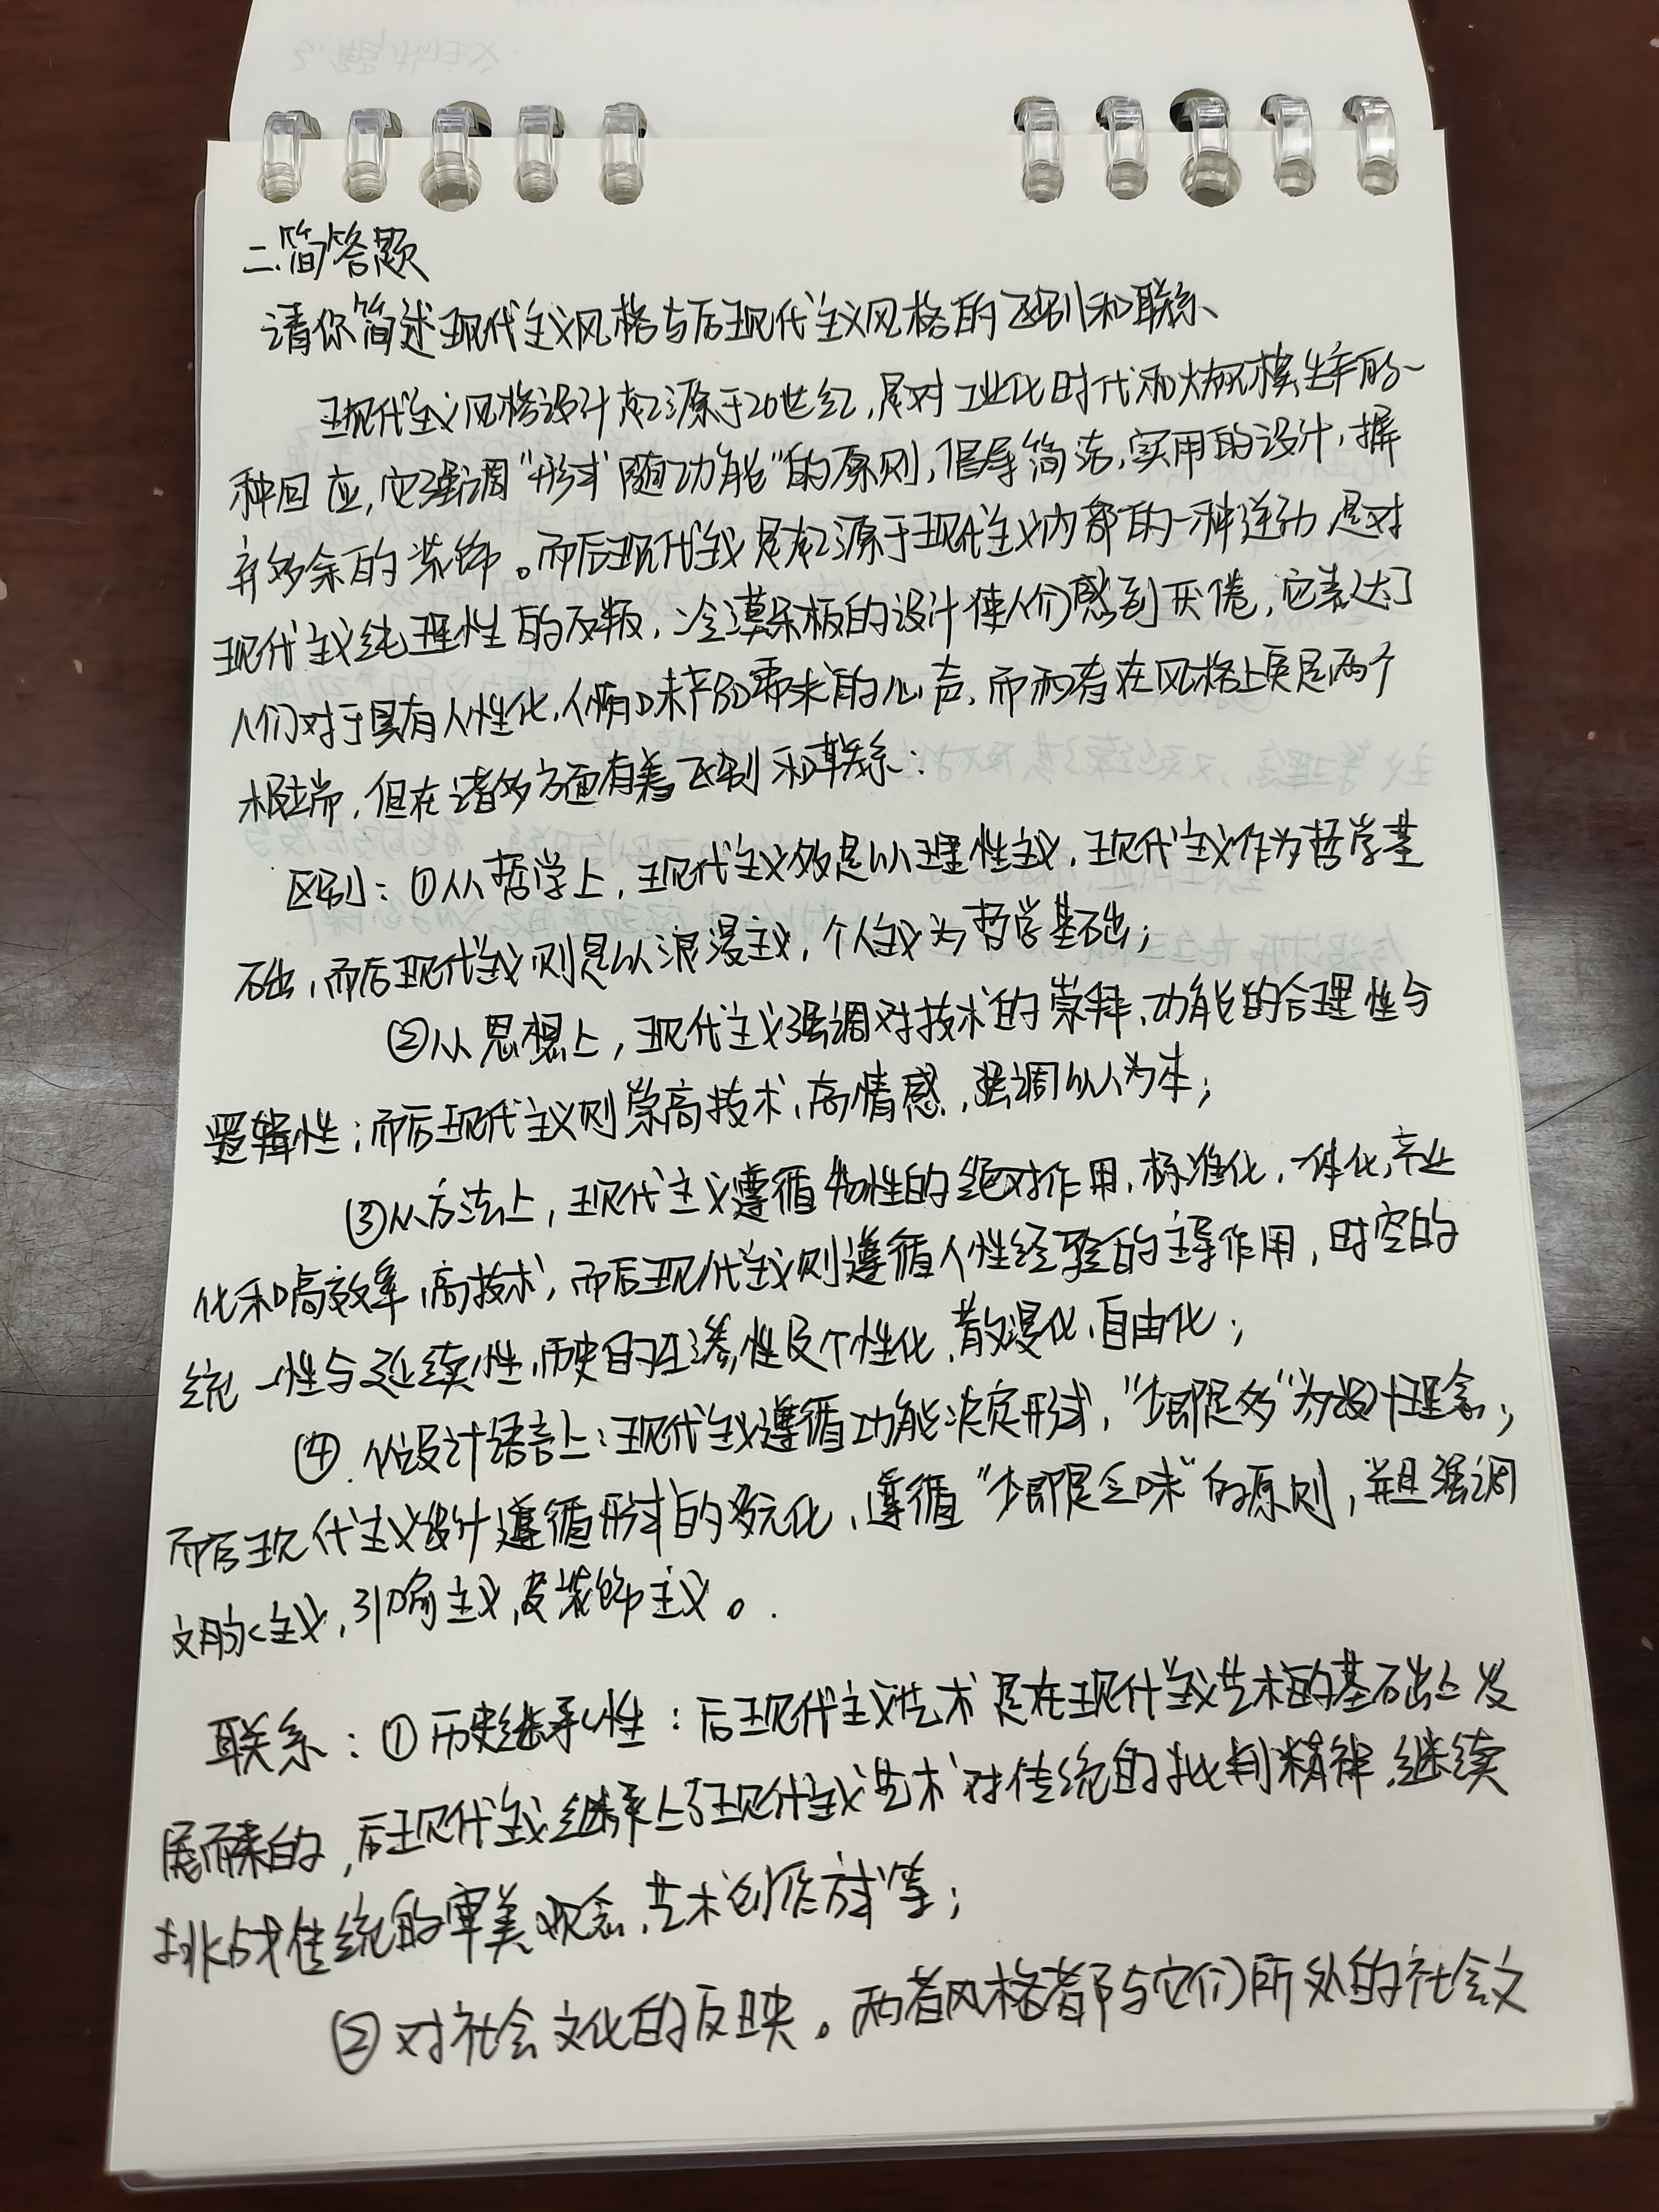 二.简答题
请你简述现代主义风格与后现代主义风格的区别和联系、
现代主义风格设计起源于20世纪,是对工业化时代和大规模生产的一
种回应,它强调"形式随功能"的原则,倡导简洁,实用的设计,摒
弃多余的装饰。而后现代主义是起源于现代主义内部的一种逆动,是对
现代主义纯理性的反叛,冷漠呆板的设计使人们感到厌倦,它表达了
人们对于具有人性化,人情味产品需求的心声,而两者在风格上更是两个
极端,但在诸多方面有着区别和联系:
区别:①从哲学上,现代主义是以理性主义,现代主义作为哲学基
础,而后现代主义则是以浪漫主义,个人主义为哲学基础;
②从思想上,现代主义强调对技术的崇拜,功能的合理性与
逻辑性;而后现代主义则崇高技术,高情感,强调以人为本;
③从方法上,现代主义遵循物性的绝对作用,标准化,一体化,产业
化和高效率,高技术,而后现代主义则遵循人性经验的主导作用,时空的
统一性与延续性,历史的互渗性及个性化,散漫化,自由化;
④.从设计语言上:现代主义遵循功能决定形式,"少即是多"为设计理念;
而后现代主义设计遵循形式的多元化,遵循"少即是乏味"的原则,并且强调
文脉主义,引喻主义,及装饰主义。.
联系:①历史继承性:后现代主义艺术是在现代主义艺术的基础上发
展而来的,后现代主义继承上了现代主义艺术对传统的批判精神,继续
挑战传统的审美观念,艺术创作方式等;
②对社会文化的反映。两者风格都与它们所处的社会文